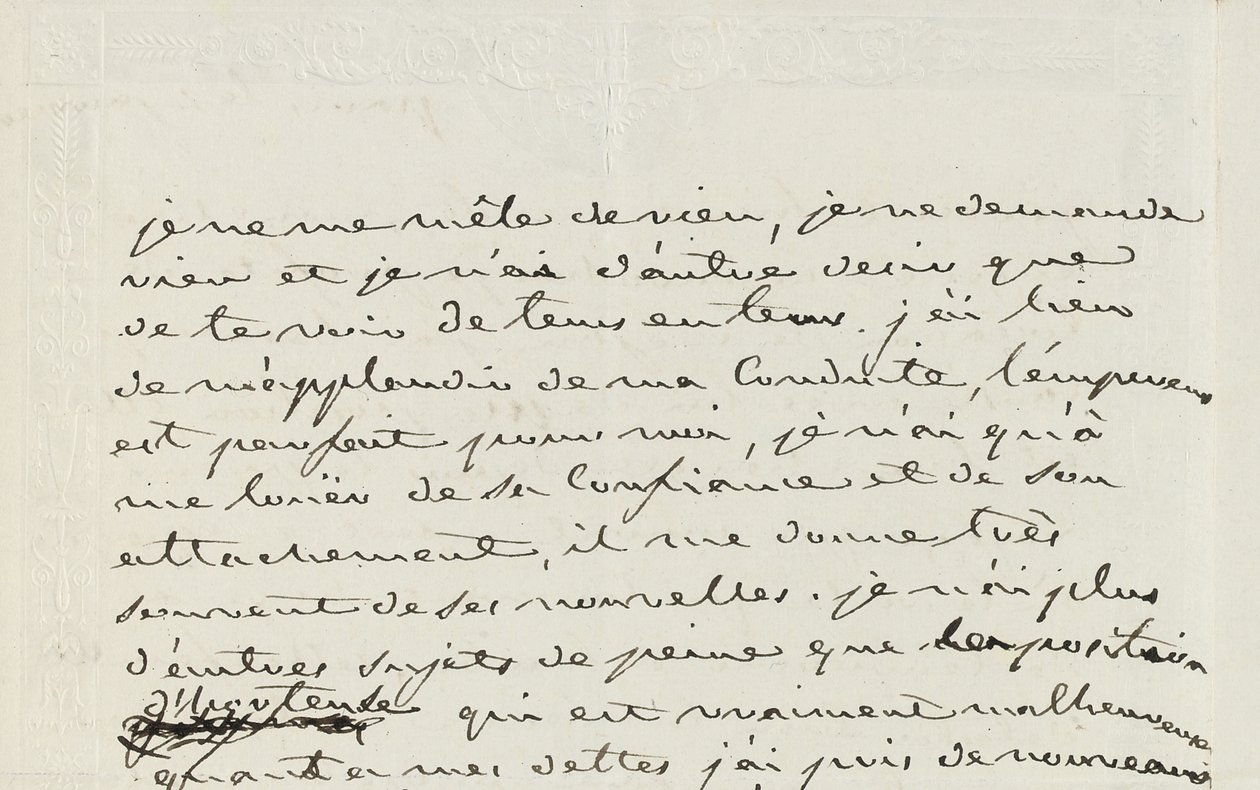 je ne me mêle de rien, je ne demande
rien et je n'ai d'autre desir que
de te voir de tems en tems. j'ai lieu
de m'applaudir de ma Conduite, l'empereur
est parfait pour moi, je n'ai qu'à
me loüer de sa Confiance et de son
attachement, il me donne très
souvent de ses nouvelles. je n'ai plus
d'autres sujets de peine que la position
d'hortense qui est vraiment malheureuse
quant a mes dettes j'ai pris de nouveaux